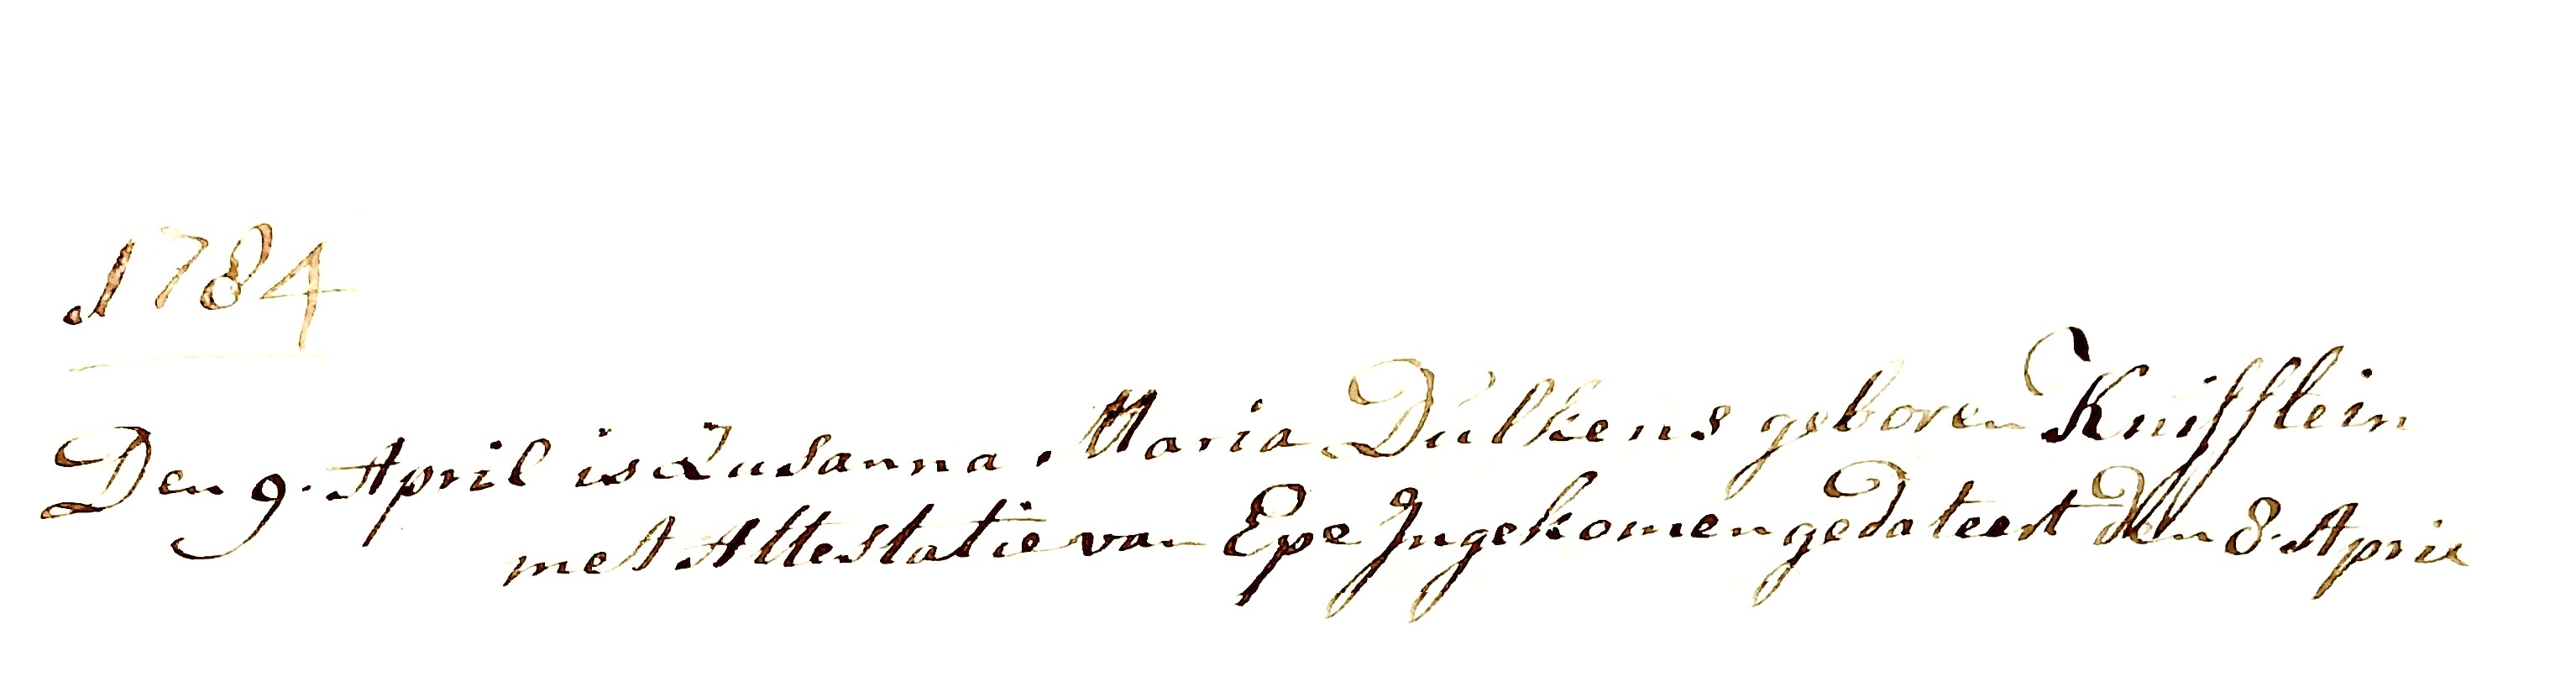 1784
Den 9. April is Susanna Maria Dulkens geboren Knifflein
met Attestatie van Epe Ingekomen gedateert den 8. April